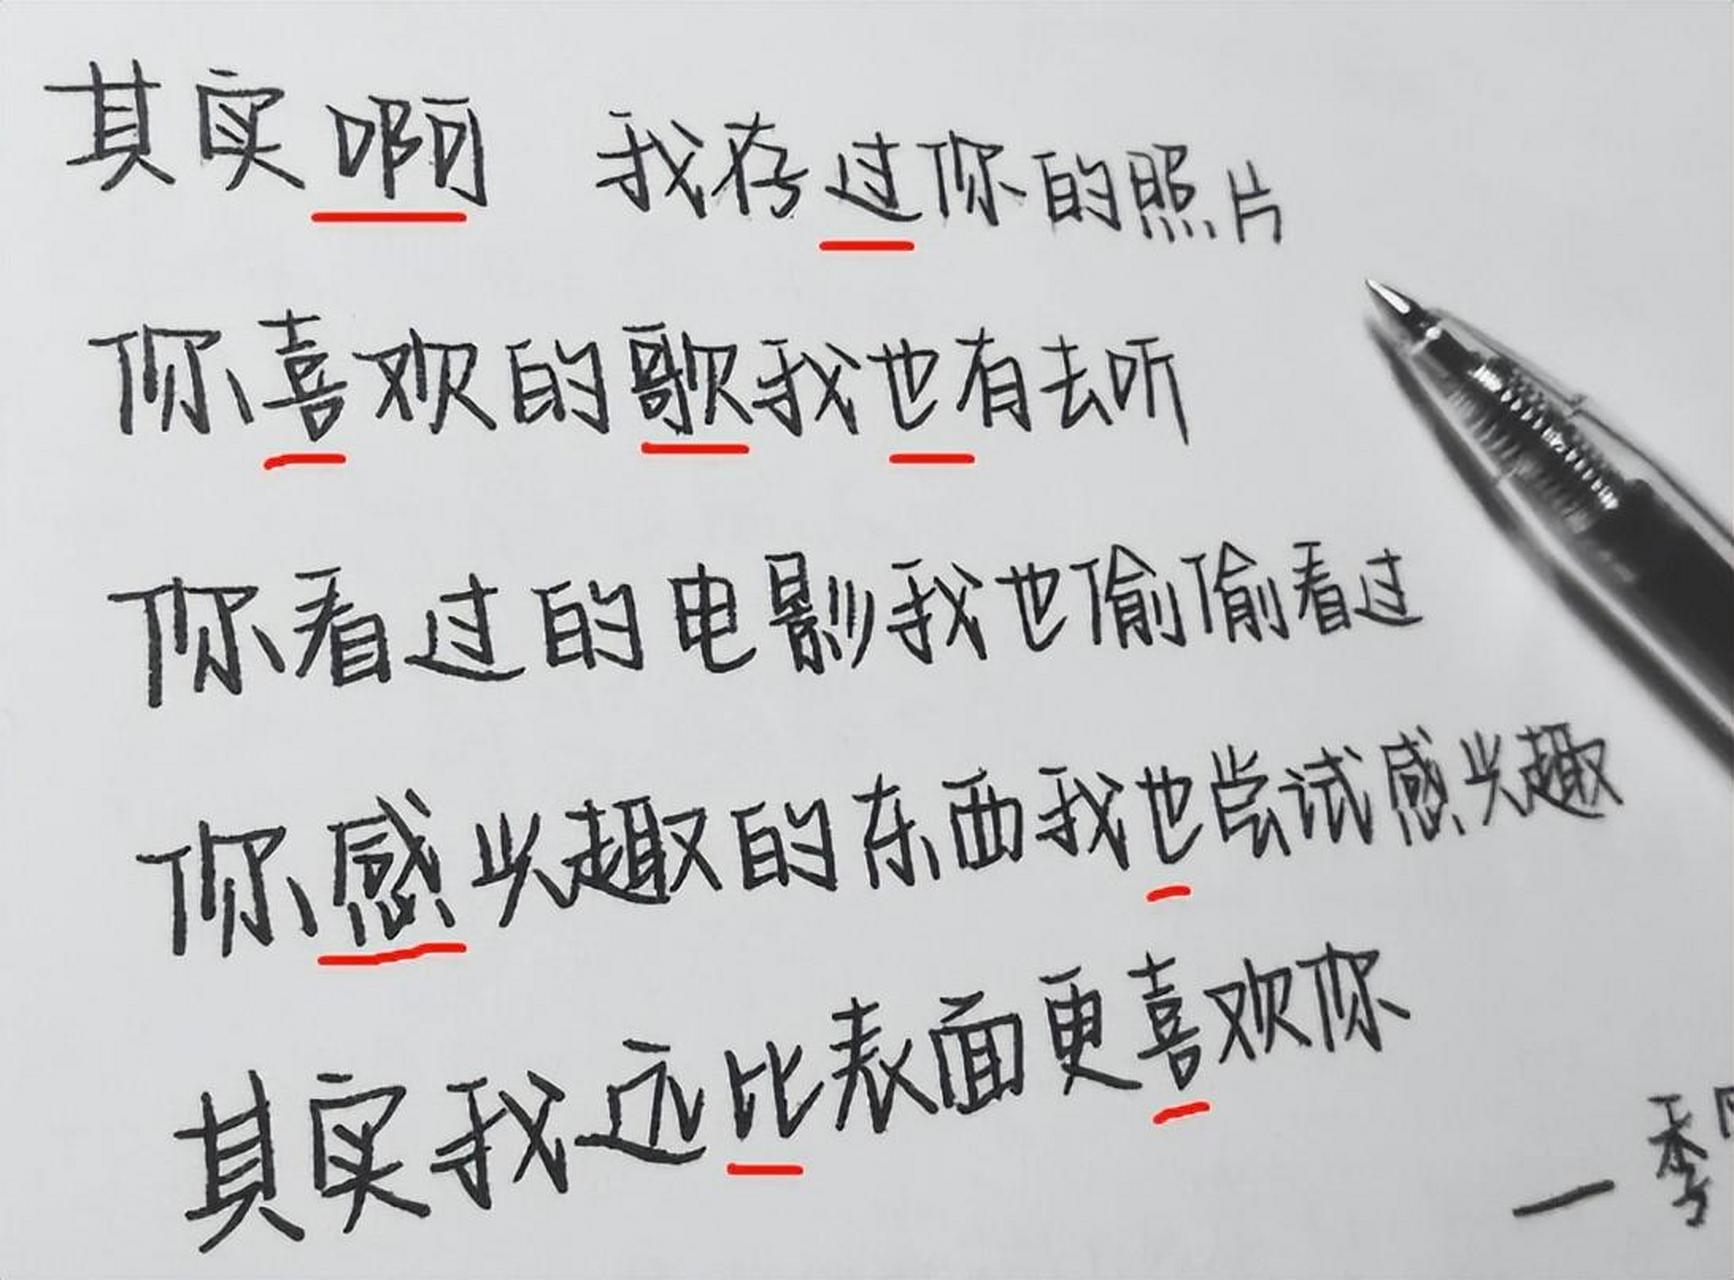 其实啊 我存过你的照片
你喜欢的歌我也有去听
你看过的电影我也偷偷看过
你感兴趣的东西我也尝试感兴趣
其实我远比表面更喜欢你
一季